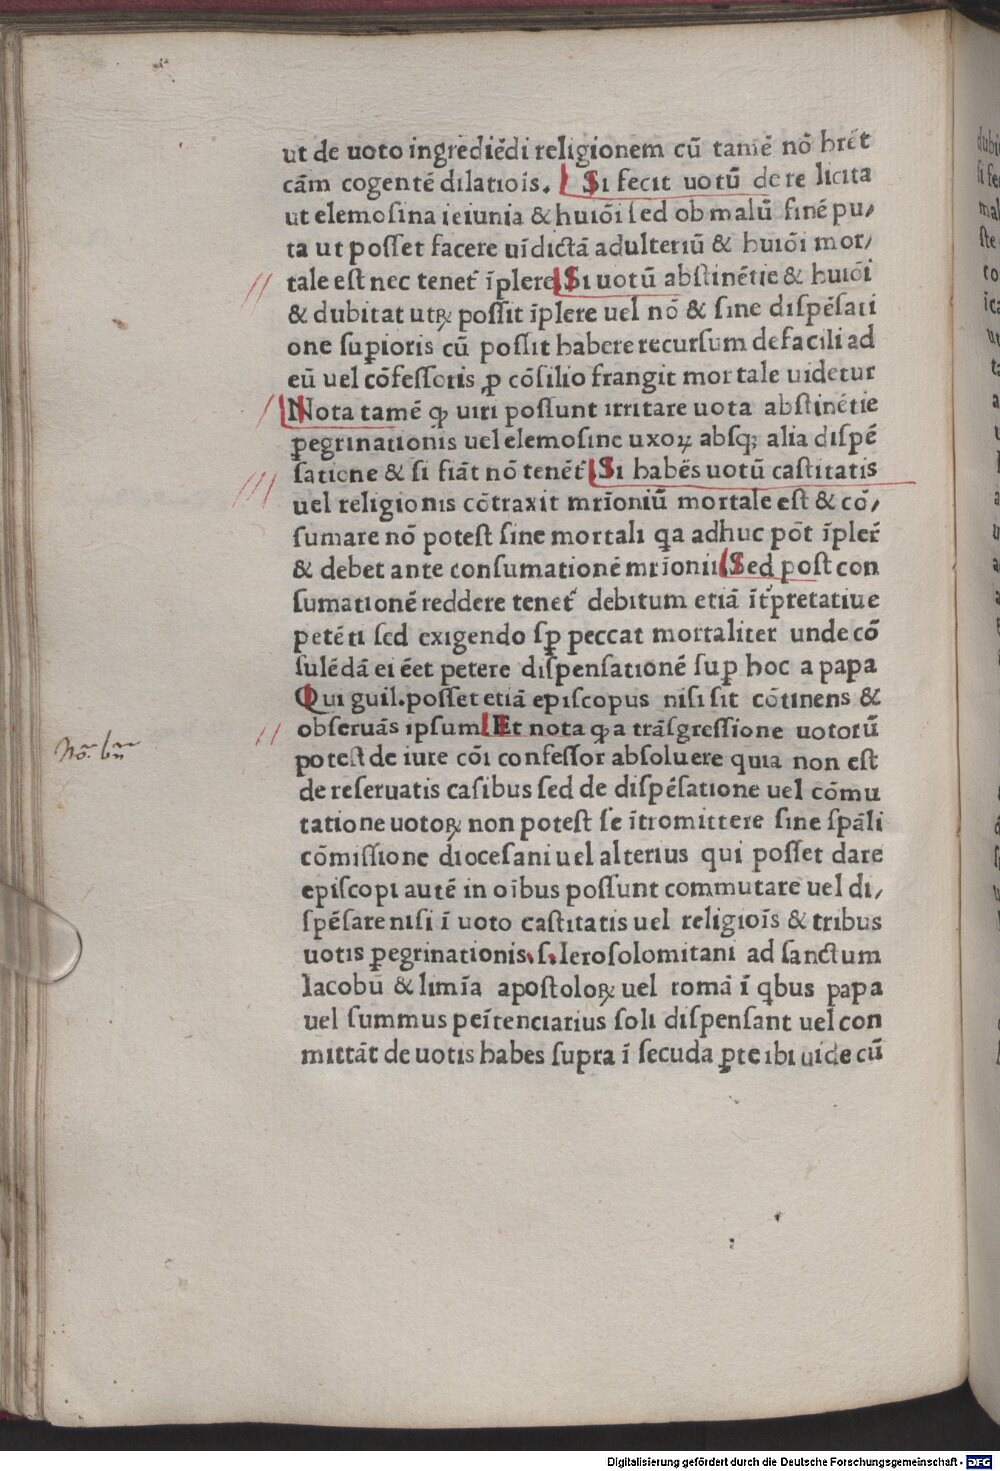 ut de uoto ingrediēdi religionem cū tamē nō hrēt
cām cogentē dilatiōis. Si fecit uotū de re licita
ut elemosina ieiunia & huiōi sed ob malū finē pu/
ta ut posset facere uīdictā adulteriū & huiōi mor/
tale est nec tenet᷑ īplere Si uotū abstinētie & huiōi
& dubitat utꝝ possit īplere uel nō & sine dispēsati
one supioris cū possit habere recursum de facili ad
eū uel cōfessoris ꝓ cōsilio frangit mortale uidetur
Nota tamē ꝙ uiri possunt irritare uota abstinētie
ꝑegrinationis uel elemosine uxoꝝ absqꝫ alia dispē
satione & si fiāt nō tenēt᷑ Si habēs uotū castitatis
uel religionis cōtraxit mrīoniū mortale est & cō/
sumare nō potest sine mortali qa adhuc pōt īpler̄
& debet ante consumationē mrīonii Sed post con
sumationē reddere tenet᷑ debitum etiā īt᷑pretatiue
petēti sed exigendo sꝑ peccat mortaliter unde cō
sulēdā ei ēet petere dispensationē suꝑ hoc a papa
Qui guil. posset etiā episcopus nisi sit cōtinens &
obseruās ipsum Et nota ꝙ a trāsgressione uotorū
potest de iure cōi confessor absoluere quia non est
de reseruatis casibus sed de dispēsatione uel cōmu
tatione uotoꝝ non potest se ītromittere sine spāli
cōmissione diocesani uel alterius qui posset dare
episcopi autē in oībus possunt commutare uel di/
spēsare nisi ī uoto castitatis uel religiōis & tribus
uotis ꝑegrinationis. s. Ierosolomitani ad sanctum
Iacobū & limīa apostoloꝝ uel romā ī qbus papa
uel summus peītenciarius soli dispensant uel con
mittāt de uotis habes supra ī secūda ꝑte ibi uide cū
Nōᵃ bn̄
Digitalisierung gefördert durch die Deutsche Forschungsgemeinschaft - DFG